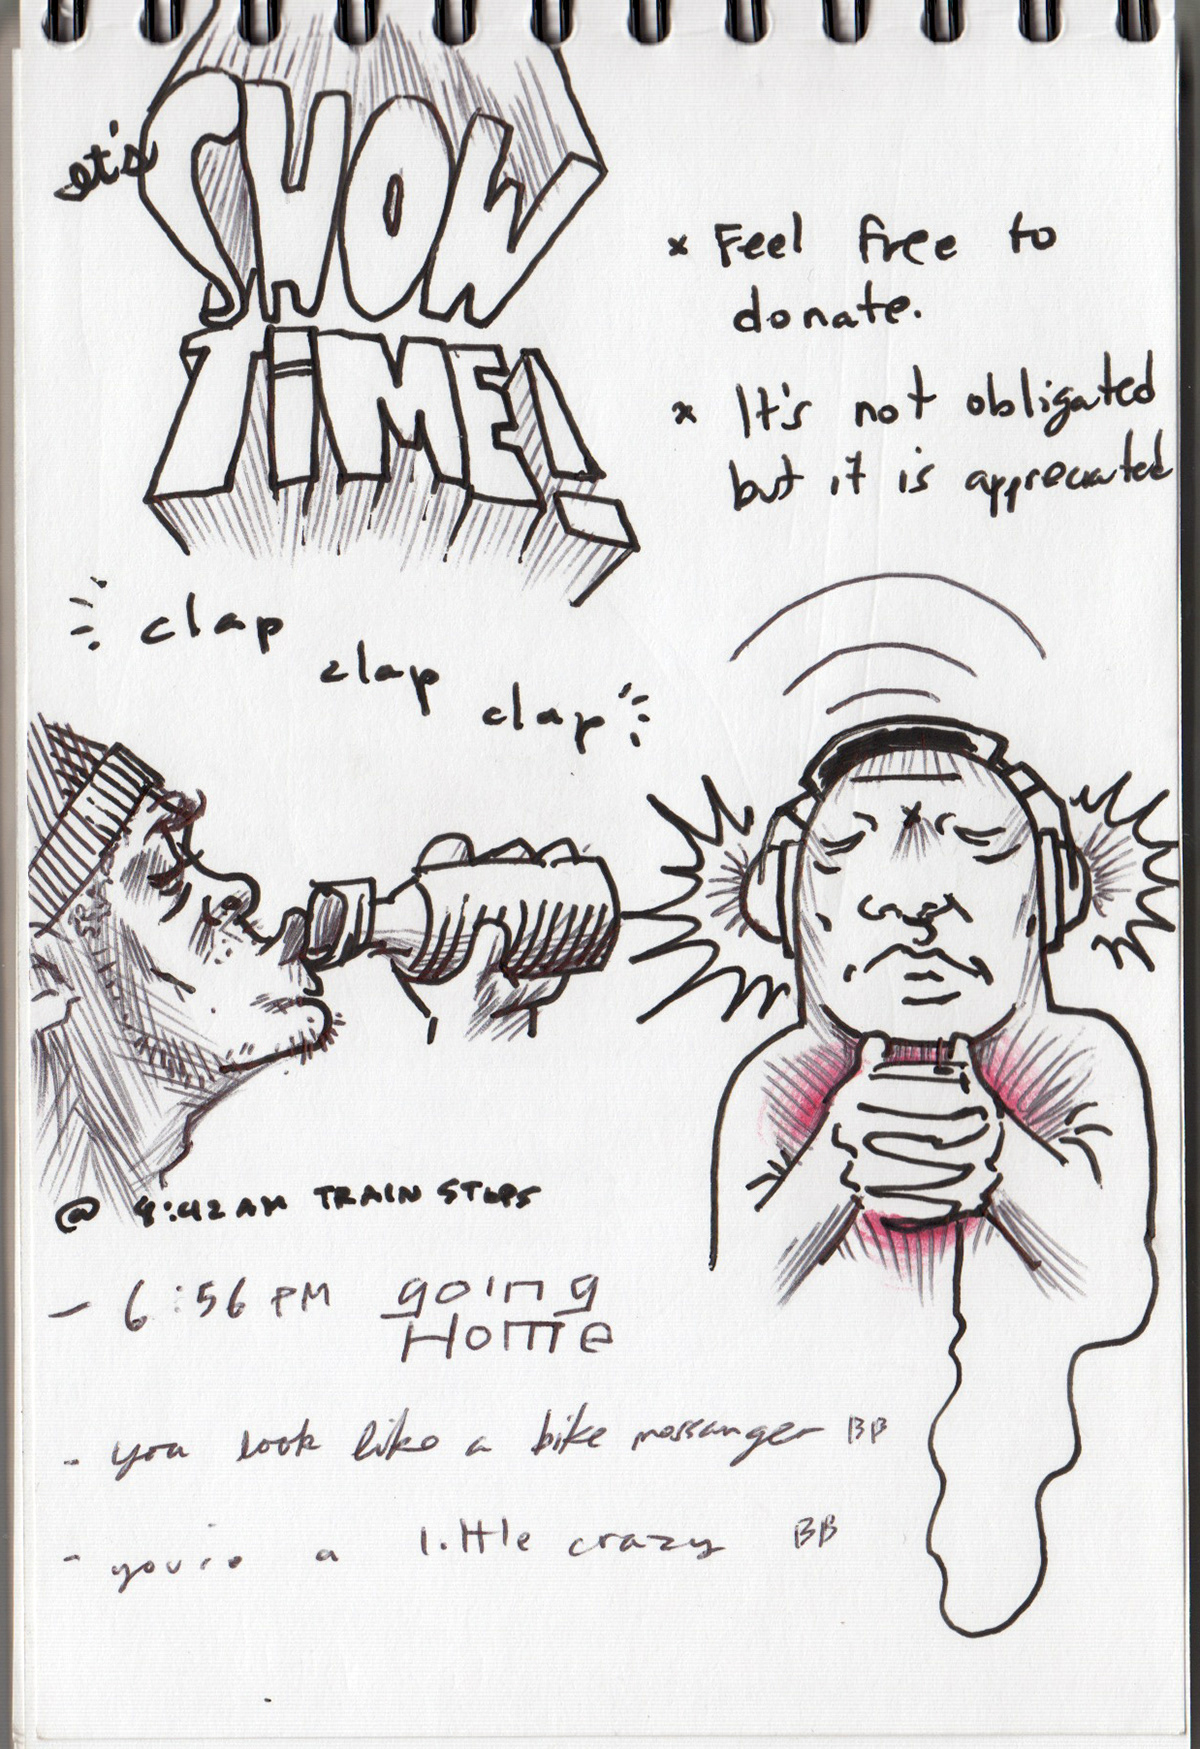 let's
SHOW
TIME!
x Feel free to
donate.
x It's not obligated
but it is appreciated
clap
clap
clap
@ 9:42 AM TRAIN STOPS
- 6:56 PM going
Home
- you look like a bike messanger BB
- you're a little crazy BB